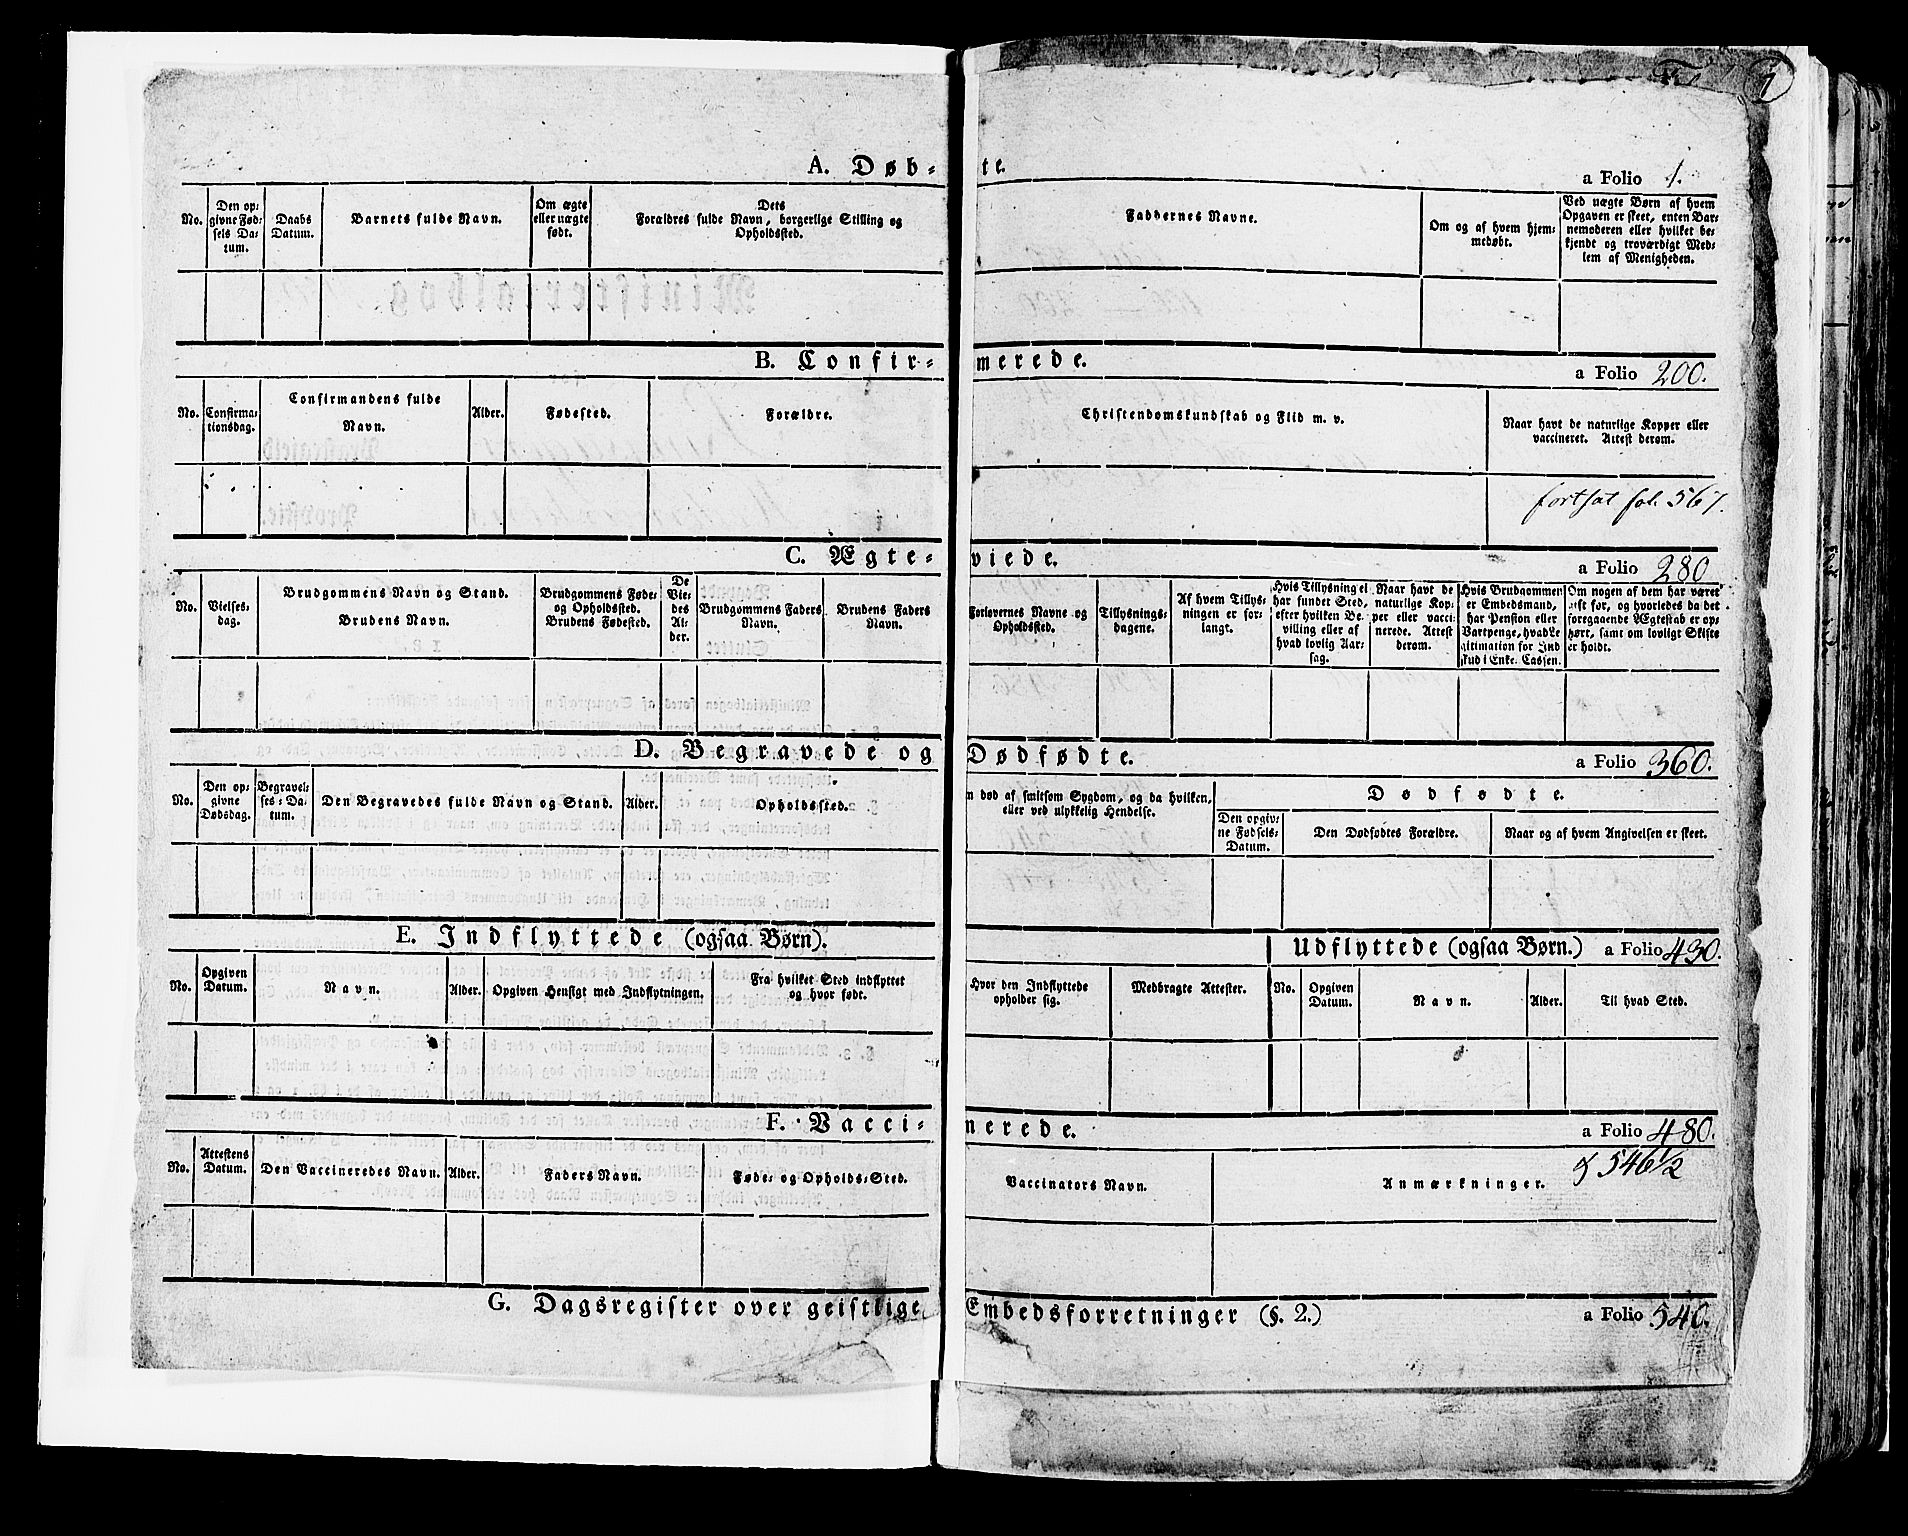 1
A. Døb-te.
a Folio 1.
No.
Den op-
givne Fød-
sels Da-
tum.
Daabs
Datum.
Barnets fulde Navn.
Om ægte
eller uægte
født.
Dets
Forældres fulde Navn, borgerlige Stilling og
Opholdssted.
Faddernes Navne.
Om og af hvem hjem-
medøbt.
Ved uægte Børn af hvem
Opgaven er skeet, enten Bar-
nemoderen eller hvilket be-
kjendt og troværdigt Med-
lem af Menigheden.
B. Confir-merede.
a Folio 200.
No.
Confirma-
tionsdag.
Confirmandens fulde
Navn.
Alder.
Fødested.
Forældre.
Christendomskundskab og Flid m. v.
Naar havt de naturlige Kopper eller
vaccineret. Attest derom.
fortsat fol. 567.
C. Ægte-viede.
a Folio 280
No.
Vielses-
dag.
Brudgommens Navn og Stand.
Brudens Navn.
Brudgommens Føde-
og Opholdssted.
Brudens Fødested.
De
Vie-
des
Al-
der.
Brudgommens Faders
Navn.
Brudens Faders
Navn.
Forlovernes Navne og
Opholdssted.
Tillysnings-
dagene.
Af hvem Tillys-
ningen er for-
langt.
Hvis Tillysning ei
har fundet Sted,
efter hvilken Be-
villing eller af
hvad lovlig Aar-
sag.
Naar havt de
naturlige Kop-
per eller vacci-
nerede. Attest
derom.
Hvis Brudgommen
er Embedsmand,
har Pension eller
Vartpenge, hvad Le
gitimation for Ind
skud i Enke. Cassen.
Om nogen af dem har været
gift før, og hvorledes da det
foregaaende Ægteskab er op-
hørt, samt om lovligt Skifte
er holdt.
D. Begravede og Dødfødte.
a Folio 360.
No.
Den op-
givne
Dødsdag.
Begravel-
ses-Da-
tum.
Den Begravedes fulde Navn og Stand.
Alder.
Opholdssted.
m død af smitsom Sygdom, og da hvilken,
eller ved ulykkelig Hendelse.
Dødfødte.
Den opgiv-
ne Fødsels-
Datum.
Den Dødfødtes Forældre.
Naar og af hvem Angivelsen er skeet.
E. Indflyttede (ogsaa Børn).
Udflyttede (ogsaa Børn.) a Folio 430.
No.
Opgiven
Datum.
Navn.
Alder.
Opgiven Hensigt med Indflytningen.
Fra hvilket Sted indflyttet
og hvor født.
Hvor den Indflyttede
opholder sig.
Medbragte Attester.
No.
Opgiven
Datum.
Navn.
Alder.
Til hvad Sted.
F. Vacci-nerede.
a Folio 480.
No.
Attestens
Datum.
Den Vaccineredes Navn.
Alder.
Faders Navn.
Føde- og Opholds-Sted.
Vaccinators Navn.
Anmærkninger.
546 1/2
G. Dagsregister over geistlige Embedsforretninger (§. 2.)
a Folio 540.